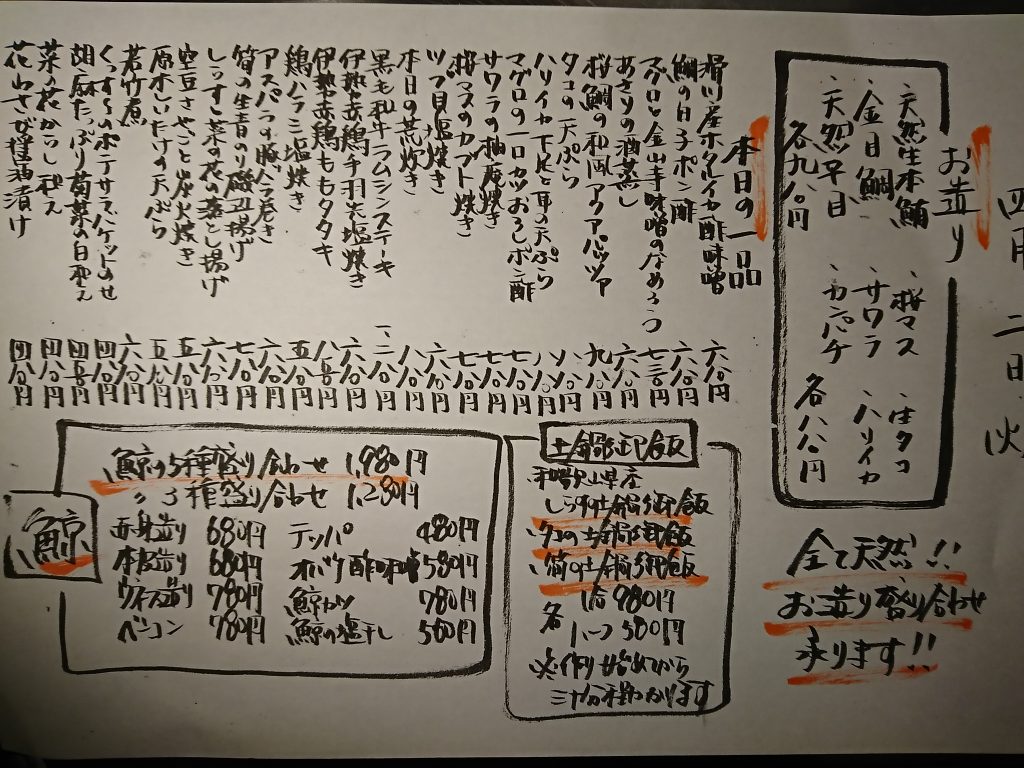 四月二日火
お造り
、天然生本鮪 、桜マス 、生タコ
、金目鯛 、サワラ 、ハリイカ
、天然平目 、カンパチ
各九八〇円 各八八〇円
全て天然!!
お造り盛り合わせ
承ります!!
本日の一品
滑川産ホタルイカ酢味噌 六八〇円
鯛の白子ポン酢 六八〇円
マグロと金山寺味噌の 七三〇円
あさりの酒蒸し 六八〇円
桜鯛の和風アクアパッツァ 九八〇円
タコの天ぷら 八八〇円
ハリイカ下足と耳の天ぷら 八八〇円
マグロの一口カツおろしポン酢 七八〇円
サワラの柚庵焼き 七八〇円
桜マスのカブト焼き 七八〇円
ツブ貝塩焼き 六八〇円
本日の荒炊き 八八〇円
黒毛和牛ラムシンステーキ 一、二八〇円
伊勢赤鶏手羽先塩焼き 六八〇円
伊勢赤鶏ももタタキ 八五〇円
鶏ハラミ塩焼き 五八〇円
アスパラの豚バラ巻き 六八〇円
筍の生青のり磯辺揚げ 七八〇円
しらすと菜の花の落とし揚げ 六八〇円
空豆さやごと炭火焼き 五八〇円
原木しいたけの天ぷら 五八〇円
若竹煮 六八〇円
くんすうのポテサラバケットのせ 四八〇円
胡麻たっぷり菊菜の白和え 四五〇円
菜の花からし和え 四八〇円
花わさび醤油漬け 四八〇円
土鍋御飯
和歌山県産
しらすの土鍋御飯
、タコの土鍋御飯
、筍の土鍋御飯
各 1合 980円
ハーフ 500円
※作り始めてから
三十分程かかります
鯨
鯨の5種盛り合わせ 1,980円
〃 3種盛り合わせ 1,280円
赤身造り 680円 テッパ 480円
本皮造り 680円 オバケ酢味噌 580円
ウネス造り 780円 鯨カツ 780円
ベーコン 780円 鯨の塩干し 580円